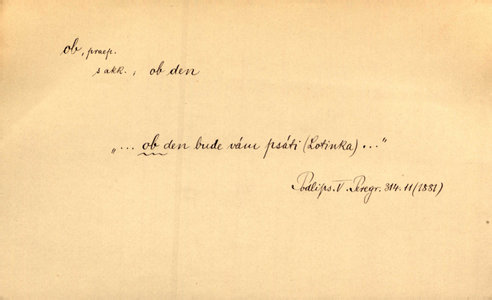 ob, praep.
s akk., ob den
„... ob den bude vám psáti (Lotinka) ..."
Podlips. V. Peregr. 314. 11 (1881)